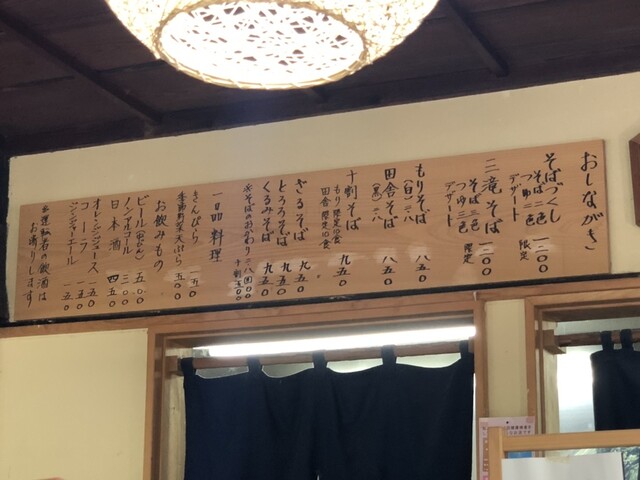 おしながき
そばづくし 一三〇〇
そば三色
つゆ三色 限定
デザート
二滝そば 一一〇〇
そば二色
つゆ二色 限定
デザート
もりそば 八五〇
(白)二八
田舎そば 八五〇
(黒)二八
十割そば 九五〇
もり限定10食
田舎限定10食
ざるそば 九五〇
とろろそば 九五〇
くるみそば 九五〇
※そばのおかわり 二八四〇〇
十割五〇〇
一品料理
きんぴら 一五〇
季節野菜天ぷら 五〇〇
お飲みもの
ビール(中びん) 五〇〇
ノンアルコール 三〇〇
日本酒 四五〇
オレンジジュース 一五〇
コーラ 一五〇
ジンジャーエール 一五〇
※運転者の飲酒は
お断りします